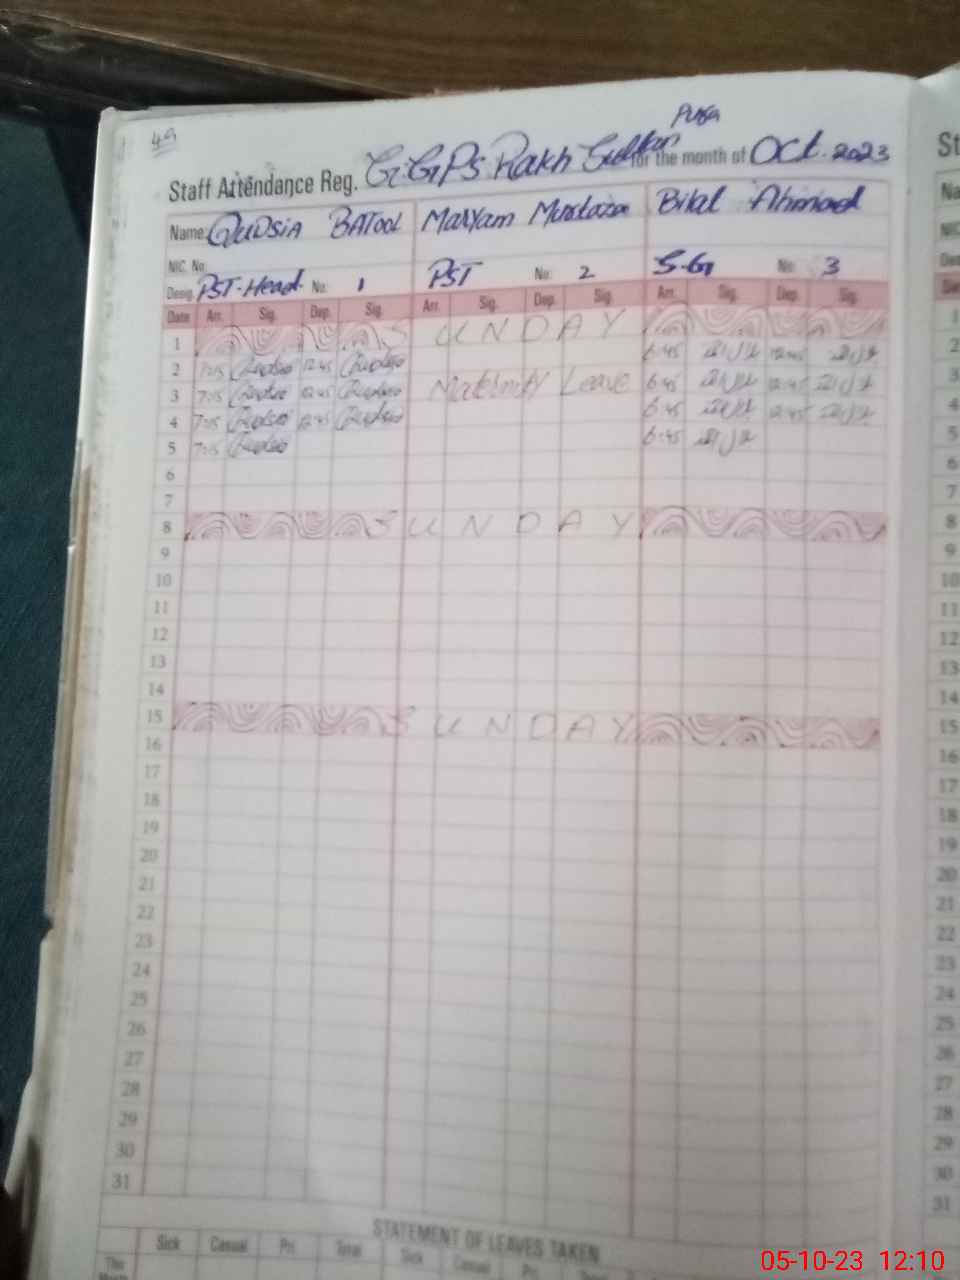 49
Purga
Staff Attendance Reg. G.G.P.S Rakh Sultan for the month of Oct. 2023
Name: QUDSIA BATOOL Maryam Murtaza Bilal Ahmad
NIC. No.
Desig. PST-Head No: 1 PST No: 2 S-G No: 3
Date Arr. Sig. Dep. Sig. Arr. Sig. Dep. Sig. Arr. Sig. Dep. Sig.
1 SUNDAY
2 7:15 Qudsia 12:45 Qudsia 6:45 12:45
3 7:15 Qudsia 12:45 Qudsia Maternity Leave 6:45 12:45
4 7:15 Qudsia 12:45 Qudsia 6:45 12:45
5 7:15 Qudsia 6:45
6
7
8 SUNDAY
9
10
11
12
13
14
15 SUNDAY
16
17
18
19
20
21
22
23
24
25
26
27
28
29
30
31
STATEMENT OF LEAVES TAKEN
Sick Casual Pri. Total Sick Casual Pri. Total
This Month
St
Na
NIC
Des
1
2
3
4
5
6
7
8
9
10
11
12
13
14
15
16
17
18
19
20
21
22
23
24
25
26
27
28
29
30
31
05-10-23 12:10